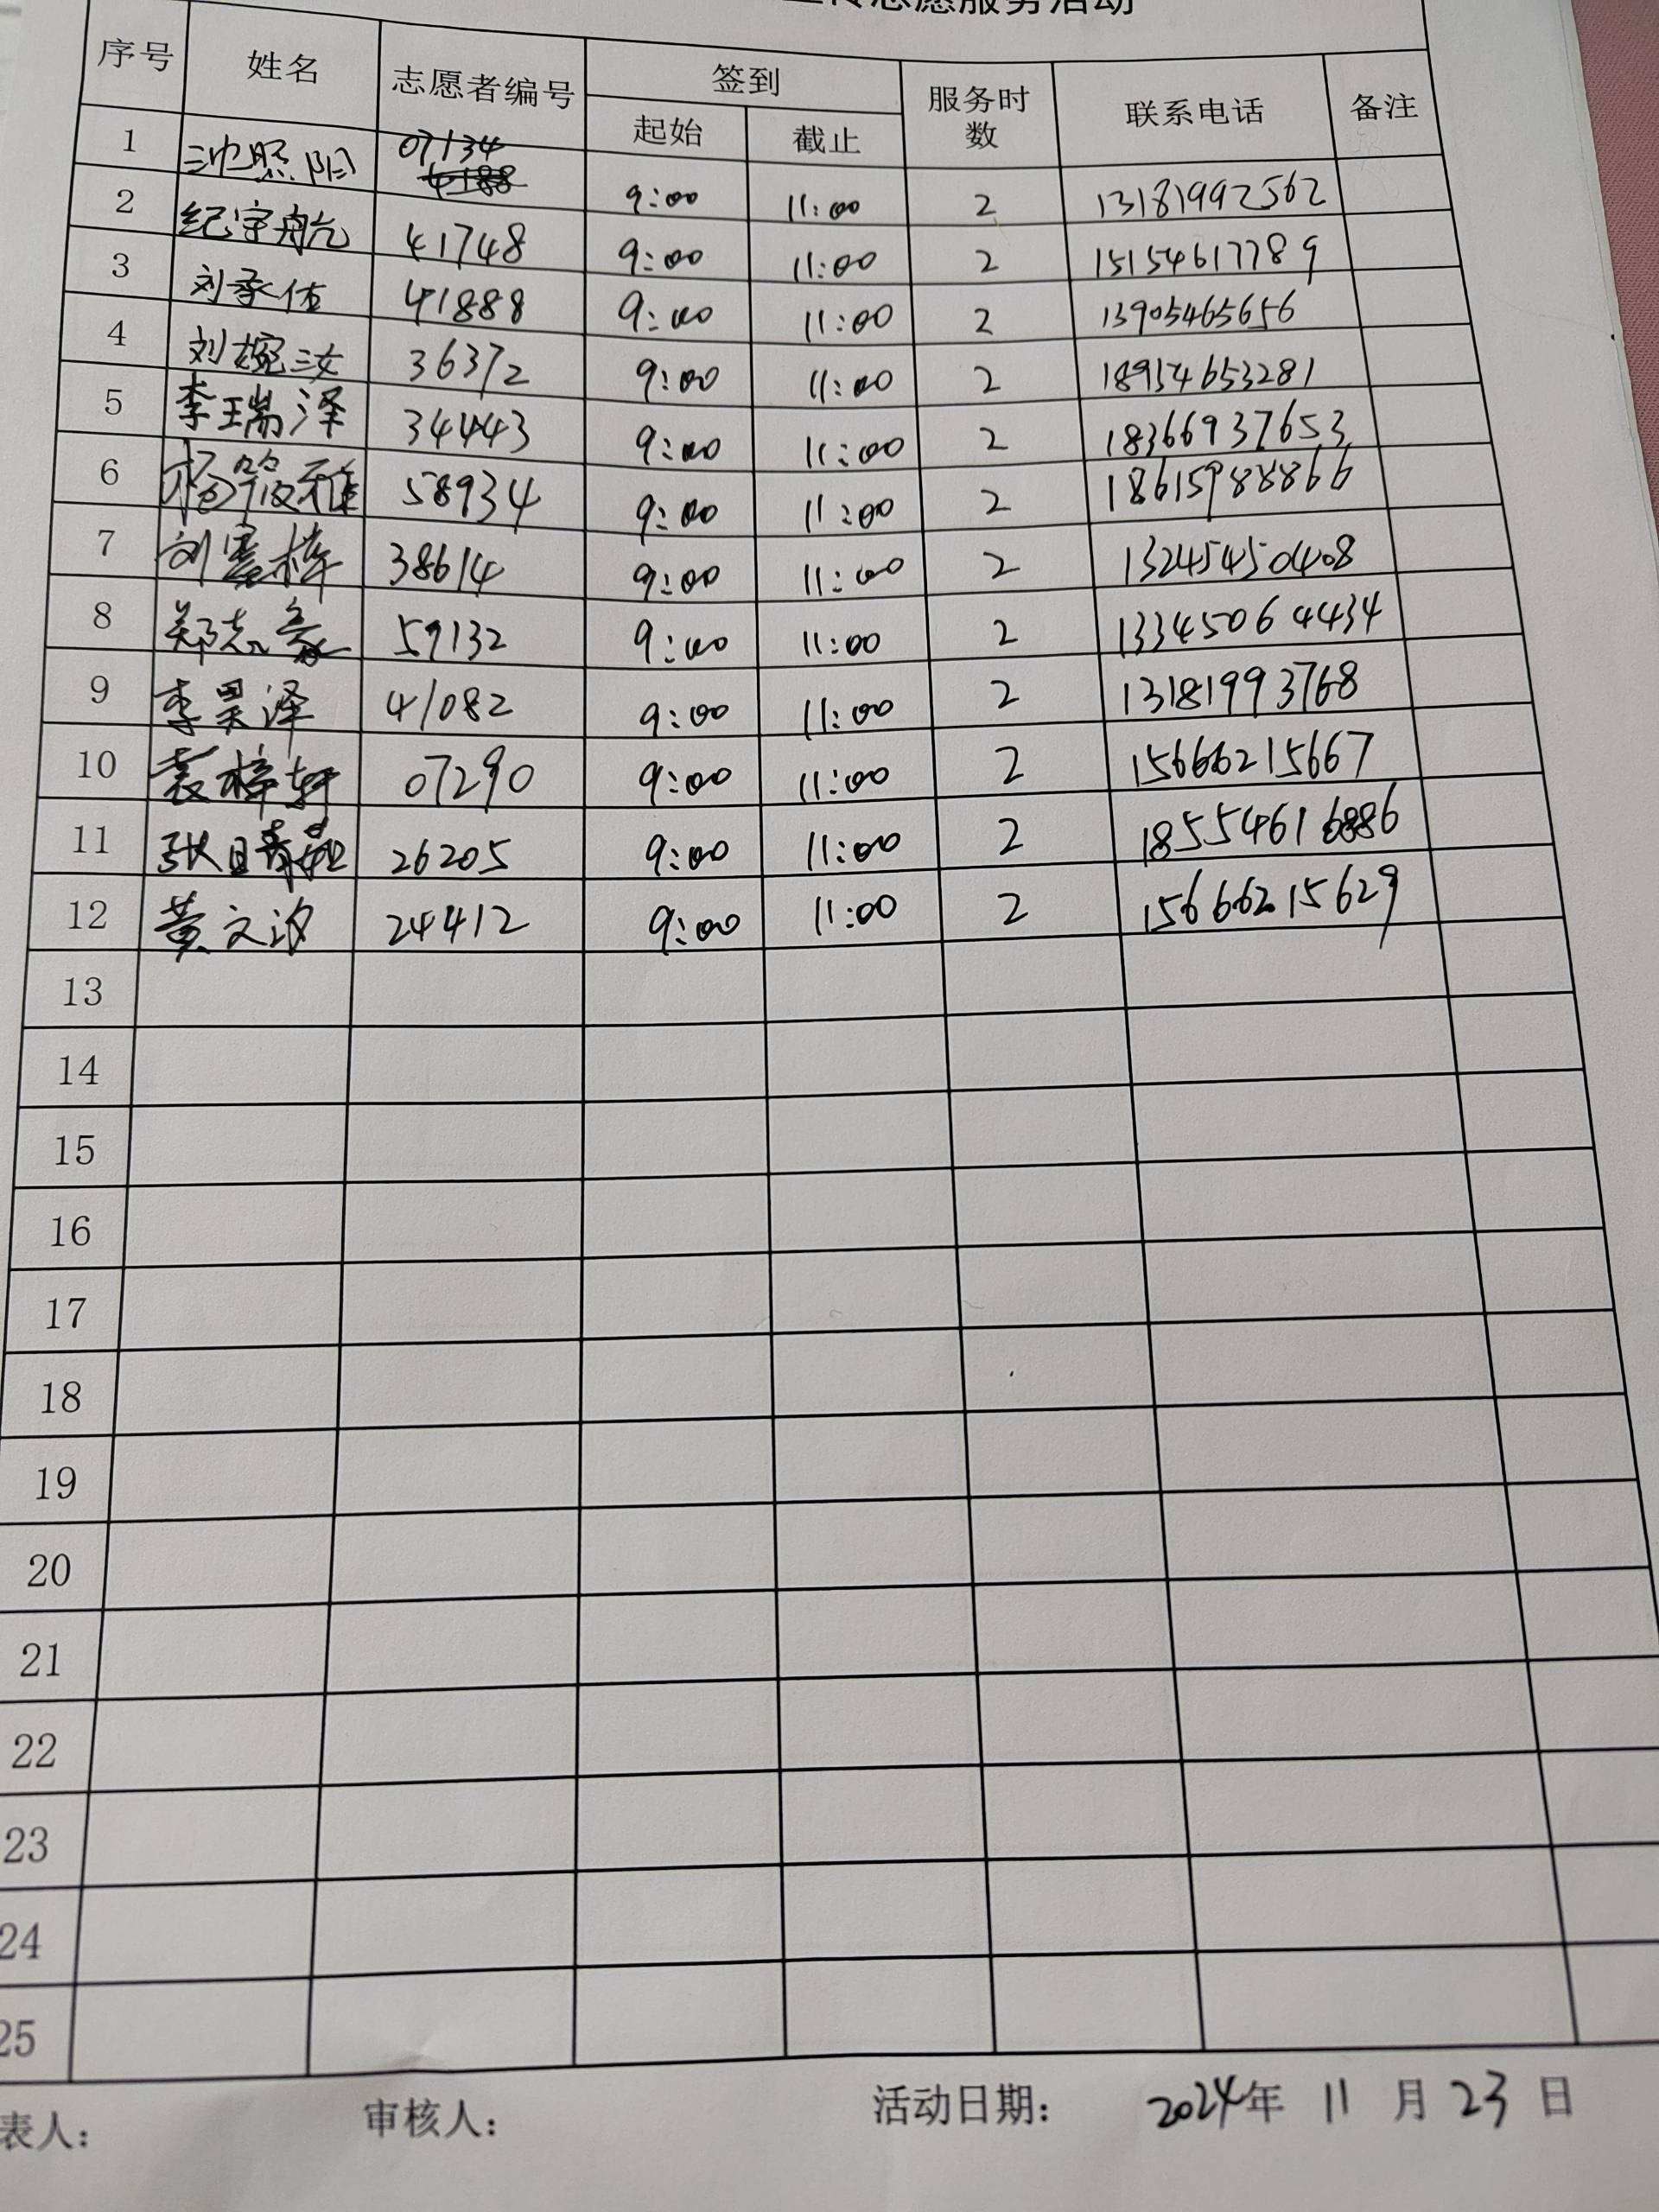 志愿服务活动
序号 姓名 志愿者编号 签到 服务时数 联系电话 备注
起始 截止
1 07134 9:00 11:00 2 13181992562
2 纪宇航 41748 9:00 11:00 2 15154617789
3 刘承佐 41888 9:00 11:00 2 13905465656
4 刘婉 36372 9:00 11:00 2 18954653281
5 李瑞泽 34443 9:00 11:00 2 18366937653
6 杨 雅 58934 9:00 11:00 2 18615988866
7 刘 梓 38614 9:00 11:00 2 13245450408
8 郑志豪 59132 9:00 11:00 2 13345064434
9 李昊泽 41082 9:00 11:00 2 13181993768
10 袁梓轩 07290 9:00 11:00 2 15666215667
11 张 26205 9:00 11:00 2 18554616886
12 黄文汐 24412 9:00 11:00 2 15666215629
13
14
15
16
17
18
19
20
21
22
23
24
25
表人： 审核人： 活动日期： 2024年 11 月 23 日